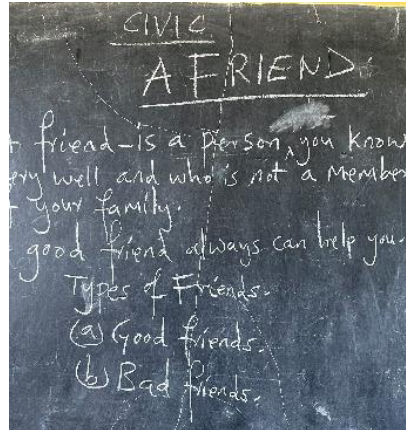 CIVIC
A FRIEND
A friend - is a person, you know
very well and who is not a member
of your family.
A good friend always can help you.
Types of Friends.
(a) Good friends.
(b) Bad friends.